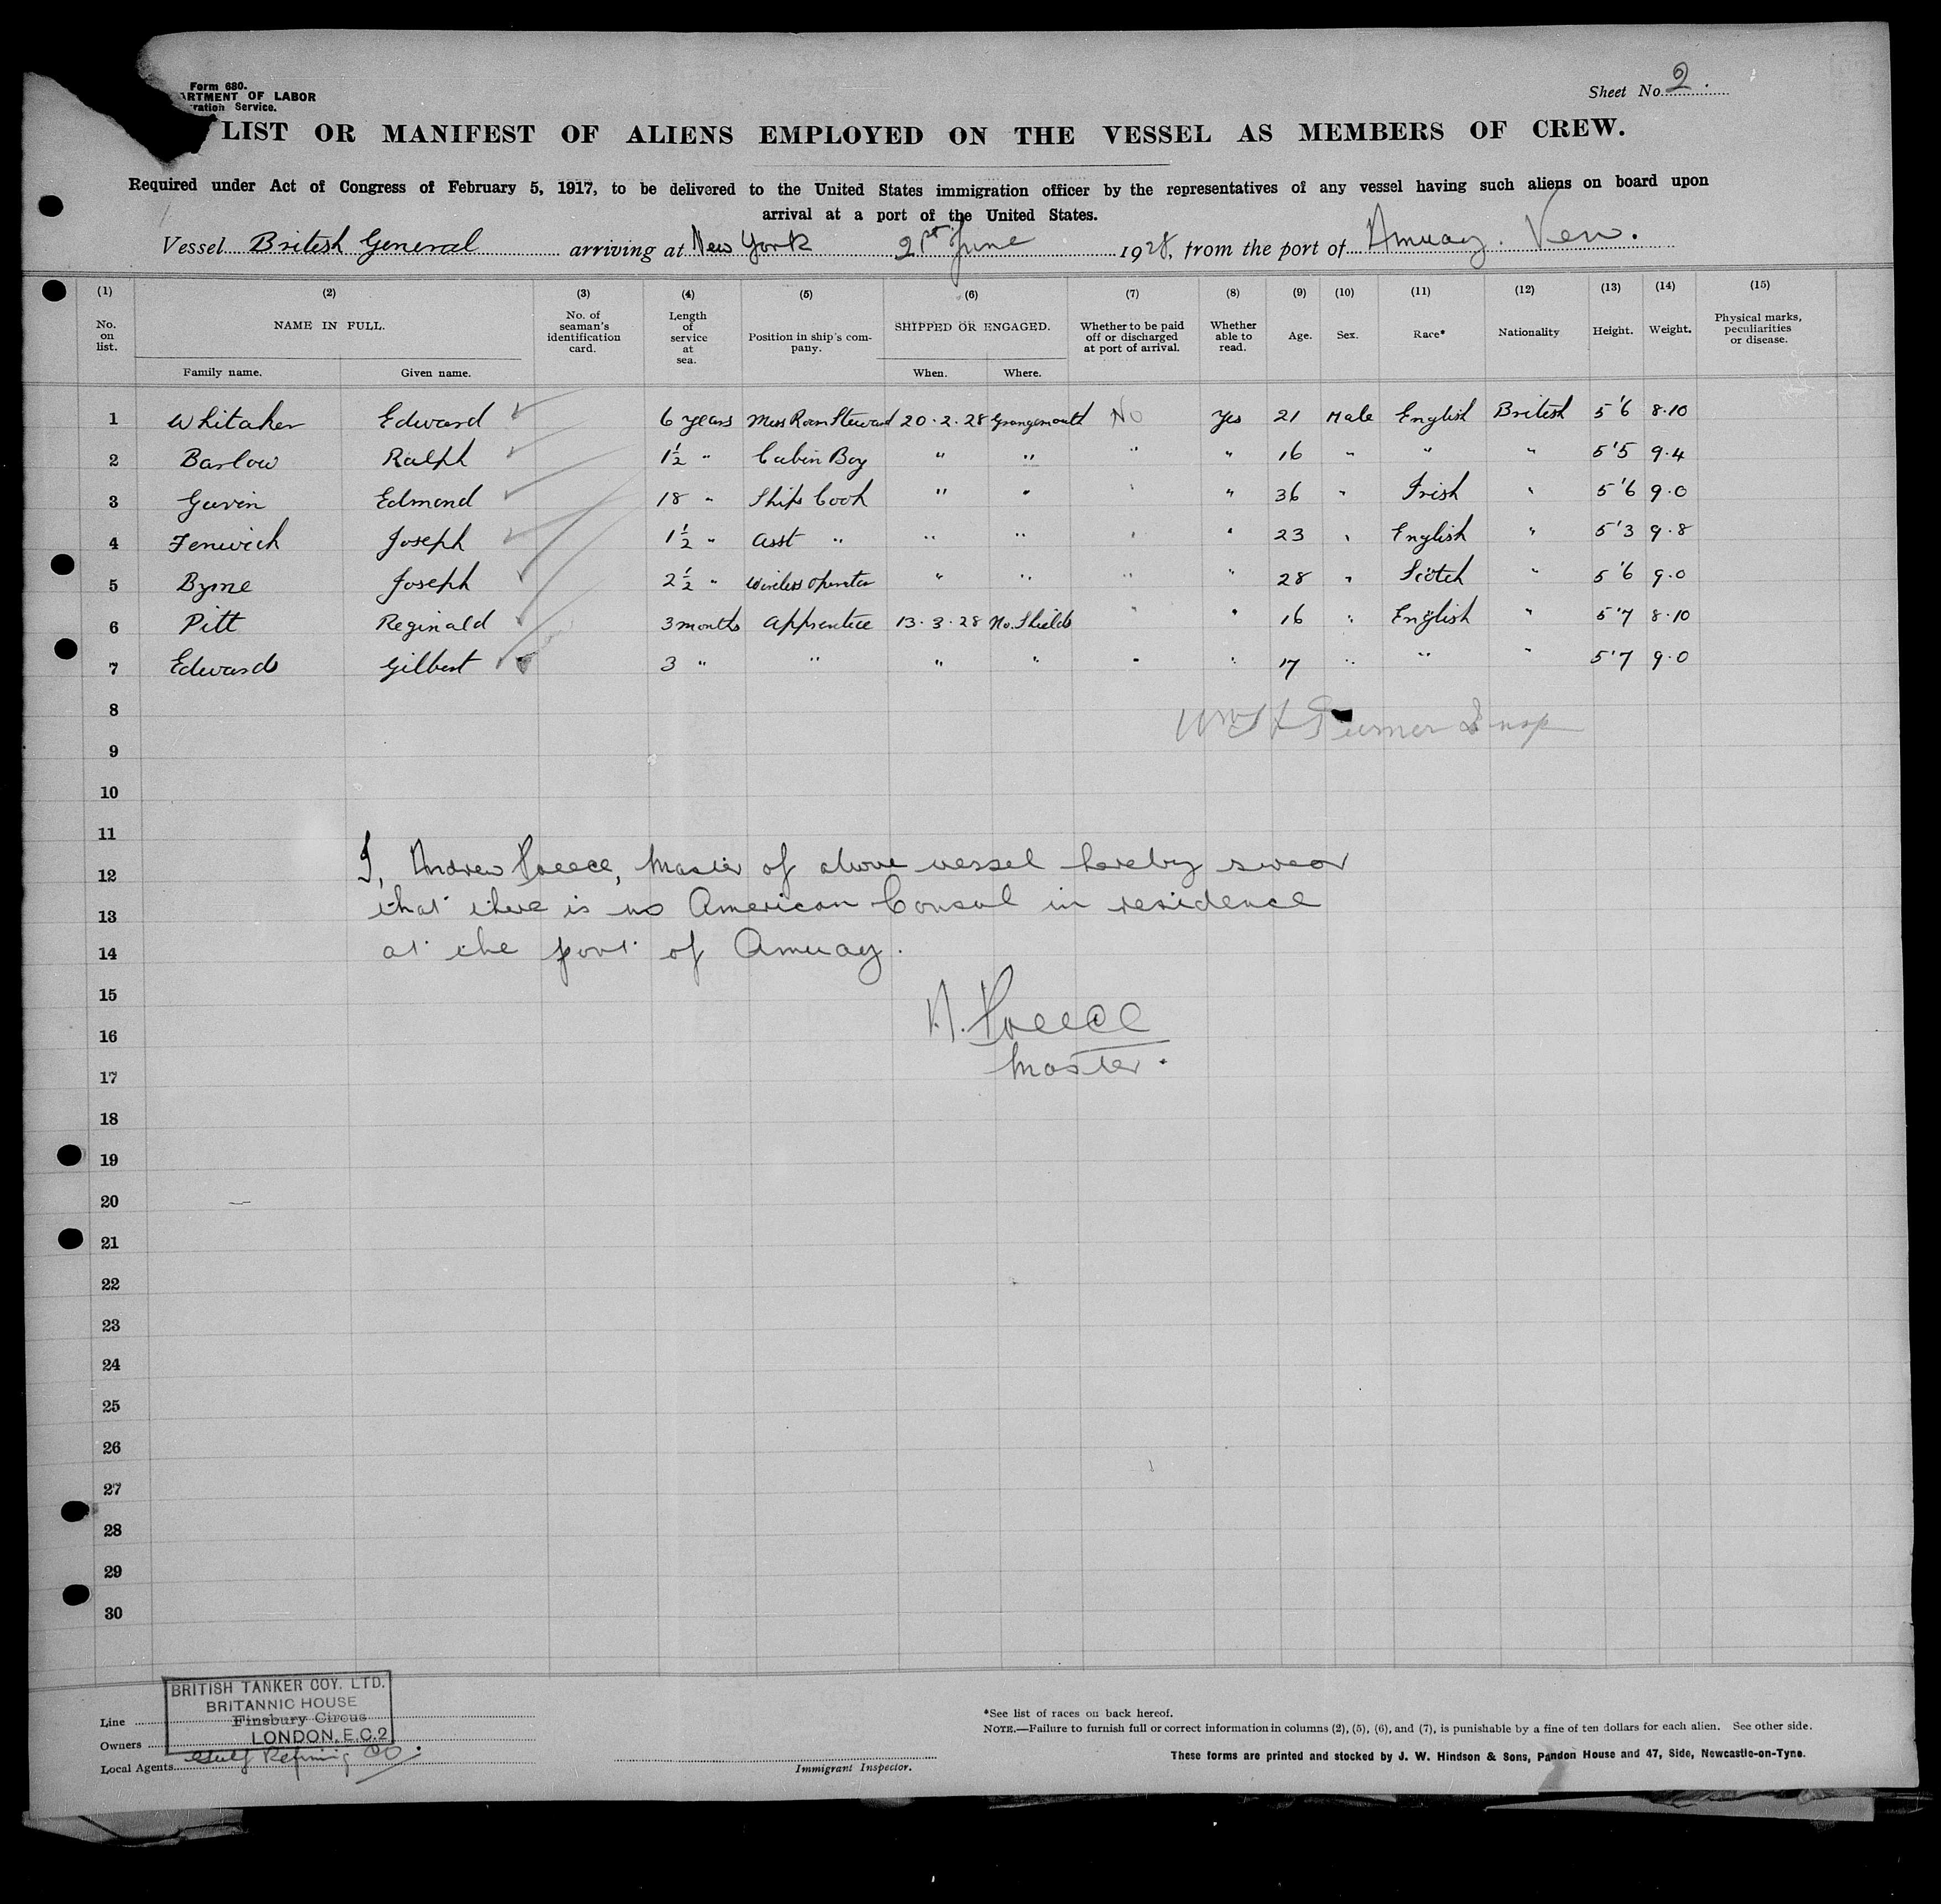 Form 680.
ARTMENT OF LABOR
ration Service.
Sheet No. 2.
LIST OR MANIFEST OF ALIENS EMPLOYED ON THE VESSEL AS MEMBERS OF CREW.
Required under Act of Congress of February 5, 1917, to be delivered to the United States immigration officer by the representatives of any vessel having such aliens on board upon
arrival at a port of the United States.
Vessel British General arriving at New York 21st June 1928, from the port of Amuay. Ven.
(1) (2) (3) (4) (5) (6) (7) (8) (9) (10) (11) (12) (13) (14) (15)
No. on list. NAME IN FULL. No. of seaman's identification card. Length of service at sea. Position in ship's company. SHIPPED OR ENGAGED. Whether to be paid off or discharged at port of arrival. Whether able to read. Age. Sex. Race* Nationality Height. Weight. Physical marks, peculiarities or disease.
Family name. Given name. When. Where.
1 Whitaker Edward 6 years Mess Room Steward 20.2.28 Grangemouth No Yes 21 Male English British 5'6 8.10
2 Barlow Ralph 1½ " Cabin Boy " " " " 16 " " " 5'5 9.4
3 Gavin Edmond 18 " Ships Cook " " " " 36 " Irish " 5'6 9.0
4 Fenwick Joseph 1½ " Asst " " " " " 23 " English " 5'3 9.8
5 Byrne Joseph 2½ " Wireless Operator " " " " 28 " Scotch " 5'6 9.0
6 Pitt Reginald 3 months Apprentice 13.3.28 No. Shields " " 16 " English " 5'7 8.10
7 Edwards Gilbert 3 " " " " " " 17 " " " 5'7 9.0
8
9
10
11
12 I, Andrew Preece, Master of above vessel hereby swear
13 that there is no American Consul in residence
14 at the port of Amuay.
15
16 A. Preece
17 Master.
18
19
20
21
22
23
24
25
26
27
28
29
30
BRITISH TANKER COY. LTD.
BRITANNIC HOUSE
Finsbury Circus
LONDON, E.C.2
Line
Owners
Local Agents Gulf Refining Co.
Immigrant Inspector.
*See list of races on back hereof.
NOTE.—Failure to furnish full or correct information in columns (2), (5), (6), and (7), is punishable by a fine of ten dollars for each alien. See other side.
These forms are printed and stocked by J. W. Hindson & Sons, Pandon House and 47, Side, Newcastle-on-Tyne.